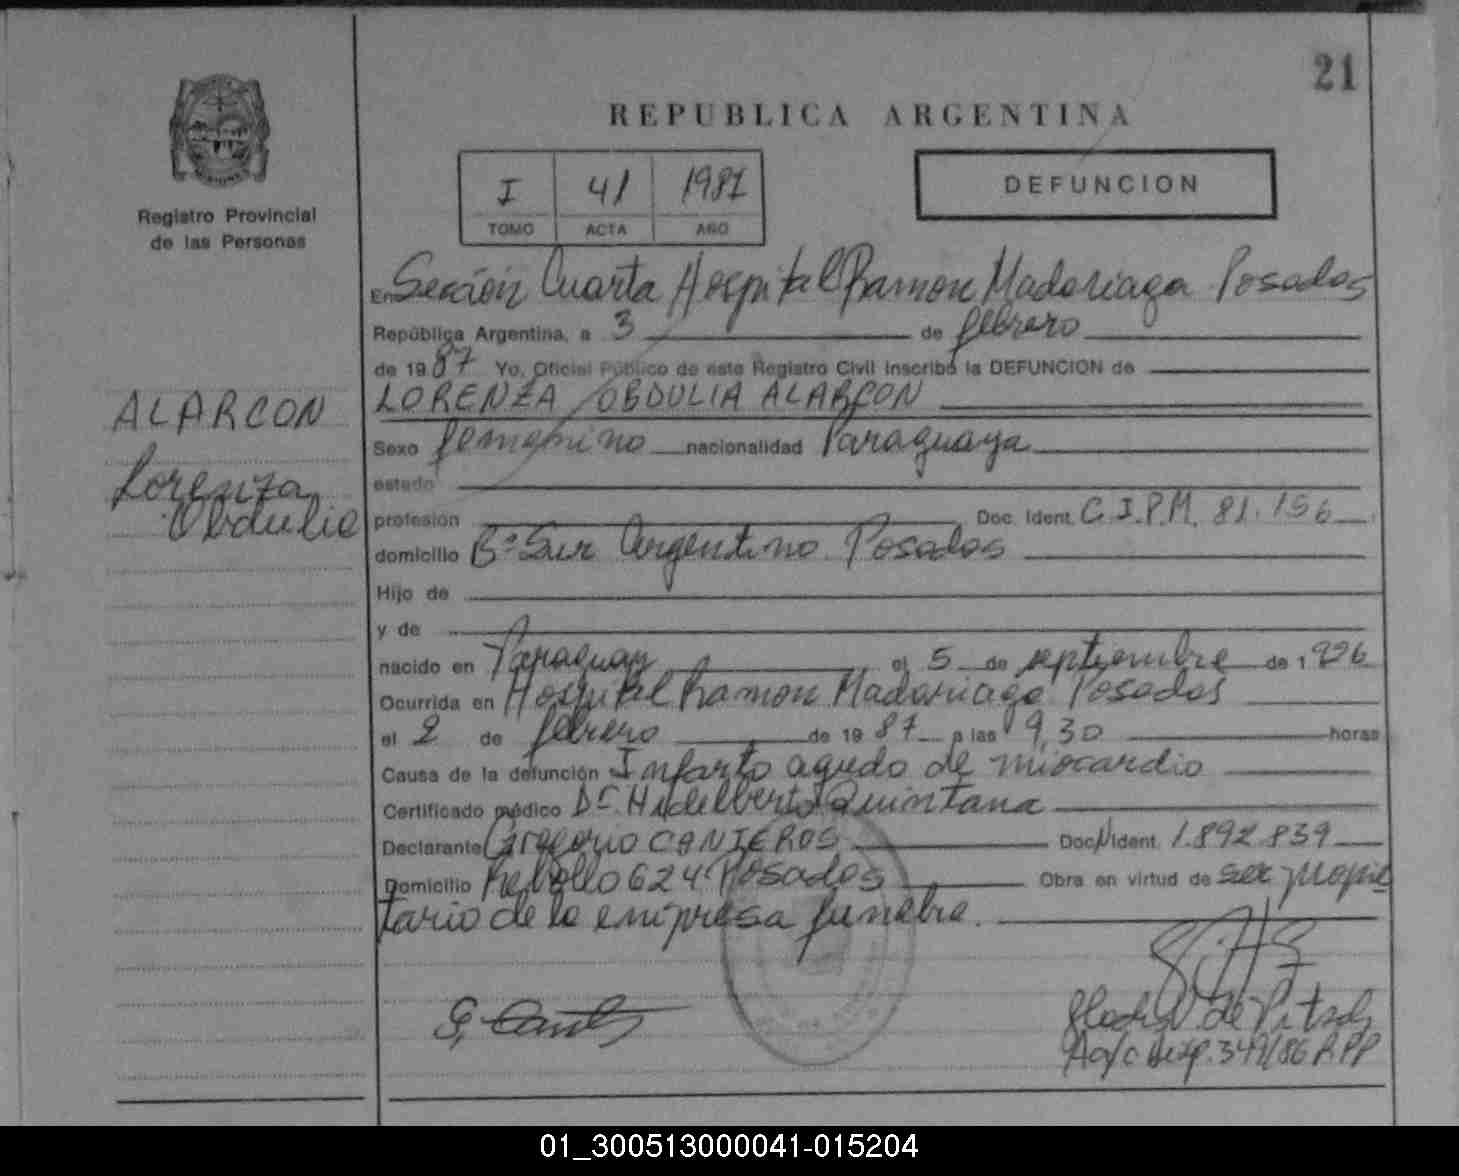 21
REPUBLICA ARGENTINA
I 41 1987
TOMO ACTA AÑO
DEFUNCION
Registro Provincial
de las Personas
ALARCON
Lorenza
Obdulia
En Sección Cuarta Hospital Ramon Madariaga Posadas
República Argentina, a 3 de febrero
de 1987 Yo, Oficial Público de este Registro Civil inscribo la DEFUNCION de
LORENZA OBDULIA ALARCON
Sexo femenino nacionalidad Paraguaya
estado
profesión Doc. Ident. C.I.P.M. 81.156
domicilio Bº Sur Argentino Posadas
Hijo de
y de
nacido en Paraguay el 5 de septiembre de 1926
Ocurrida en Hospital Ramon Madariaga Posadas
el 2 de febrero de 1987 a las 9,30 horas
Causa de la defunción Infarto agudo de miocardio
Certificado médico Dr. Hidelberto Quintana
Declarante Gregorio CANTEROS Doc. Ident. 1.892.839
Domicilio Rebollo 624 Posadas Obra en virtud de ser propie
tario de la empresa funebre.
A/c Disp. 349/86 RPP
01_300513000041-015204